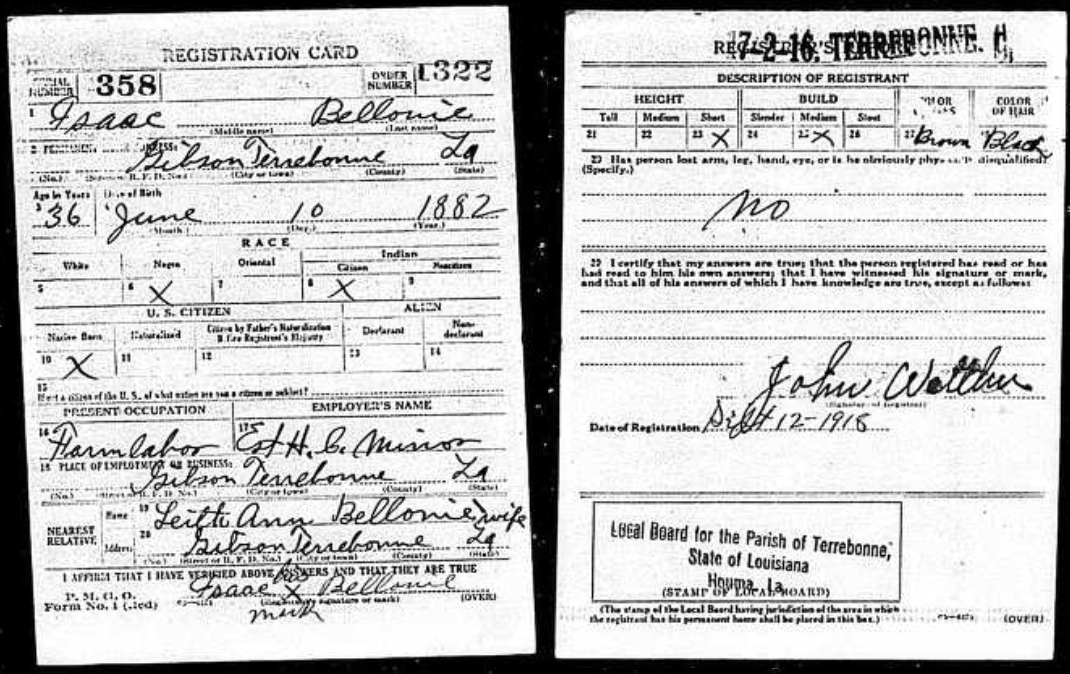 REGISTRATION CARD
SERIAL NUMBER 358 ORDER NUMBER 1322
1 Isaac Bellonie
(Middle name) (Last name)
2 PERMANENT HOME ADDRESS:
Gibson Terrebonne La
(No.) (Street or R. F. D. No.) (City or town) (County) (State)
Age in Years Date of Birth
3 36 4 June 10 1882
(Month) (Day) (Year)
RACE
White Negro Oriental Indian
Citizen Noncitizen
5 6 X 7 8 X 9
U. S. CITIZEN ALIEN
Native Born Naturalized Citizen by Father's Naturalization Before Registrant's Majority Declarant Non-declarant
10 X 11 12 13 14
15
If not a citizen of the U. S., of what nation are you a citizen or subject?
PRESENT OCCUPATION EMPLOYER'S NAME
16 Farm labor 17 Est H. C. Minor
18 PLACE OF EMPLOYMENT OR BUSINESS:
Gibson Terrebonne La
(No.) (Street or R. F. D. No.) (City or town) (County) (State)
NEAREST RELATIVE
Name 19 Ann Bellonie, wife
Address 20 Gibson Terrebonne La
(No.) (Street or R. F. D. No.) (City or town) (County) (State)
I AFFIRM THAT I HAVE VERIFIED ABOVE ANSWERS AND THAT THEY ARE TRUE
P. M. G. O.
Form No. 1 (Red)
Isaac his X Bellonie
(Registrant's signature or mark) (OVER)
mark
REGISTRAR'S REPORT
17-2-16. TERREBONNE.
DESCRIPTION OF REGISTRANT
HEIGHT BUILD COLOR OF EYES COLOR OF HAIR
Tall Medium Short Slender Medium Stout
21 22 23 X 24 25 X 26 27 Brown 28 Black
29 Has person lost arm, leg, hand, eye, or is he obviously physically disqualified?
(Specify.)
no
30 I certify that my answers are true; that the person registered has read or has
had read to him his own answers; that I have witnessed his signature or mark,
and that all of his answers of which I have knowledge are true, except as follows:
John
(Signature of Registrar)
Date of Registration Sept 12-1918
Local Board for the Parish of Terrebonne,
State of Louisiana
Houma, La.
(STAMP OF LOCAL BOARD)
(The stamp of the Local Board having jurisdiction of the area in which
the registrant has his permanent home shall be placed in this box.)
(OVER)